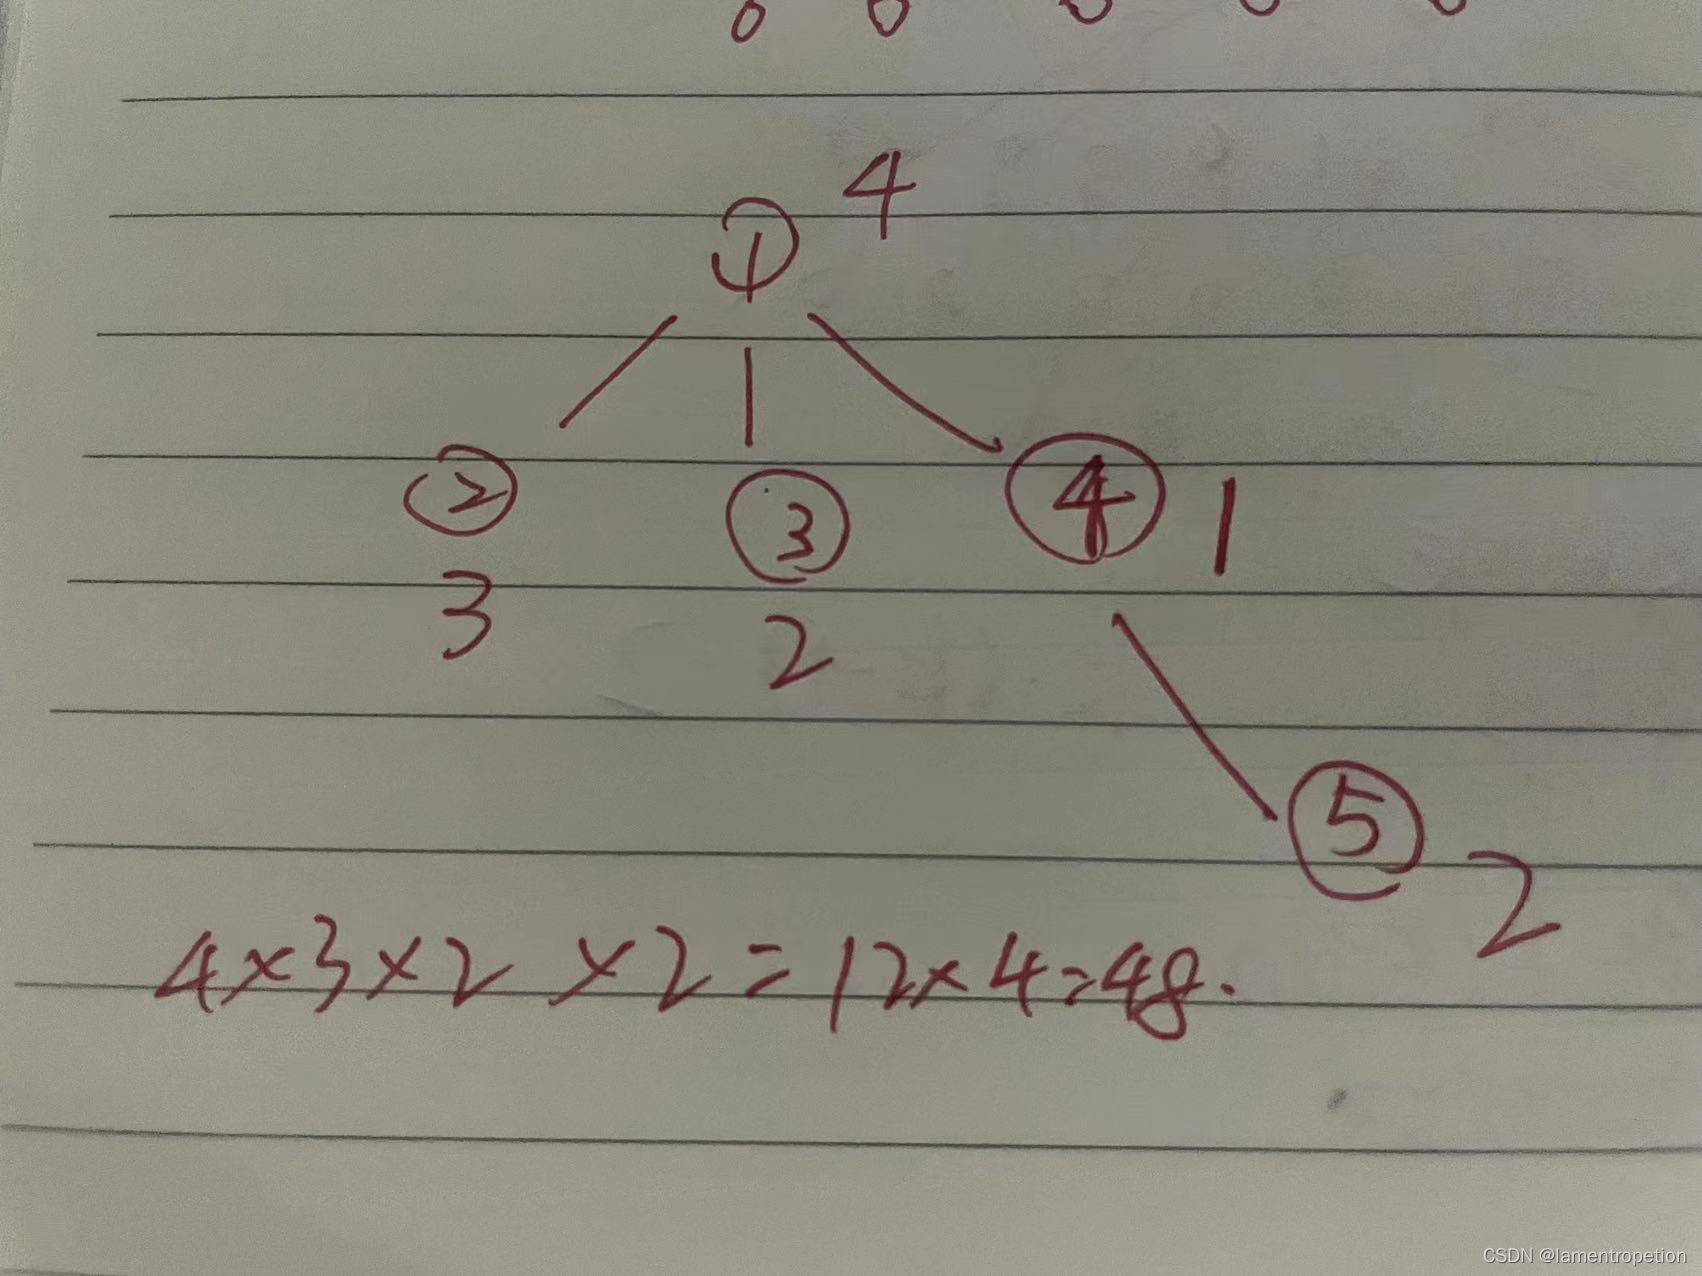 4
①
② ③ ④ 1
3 2
⑤
2
4×3×2 ×2=12×4=48.
CSDN @lamentropetion